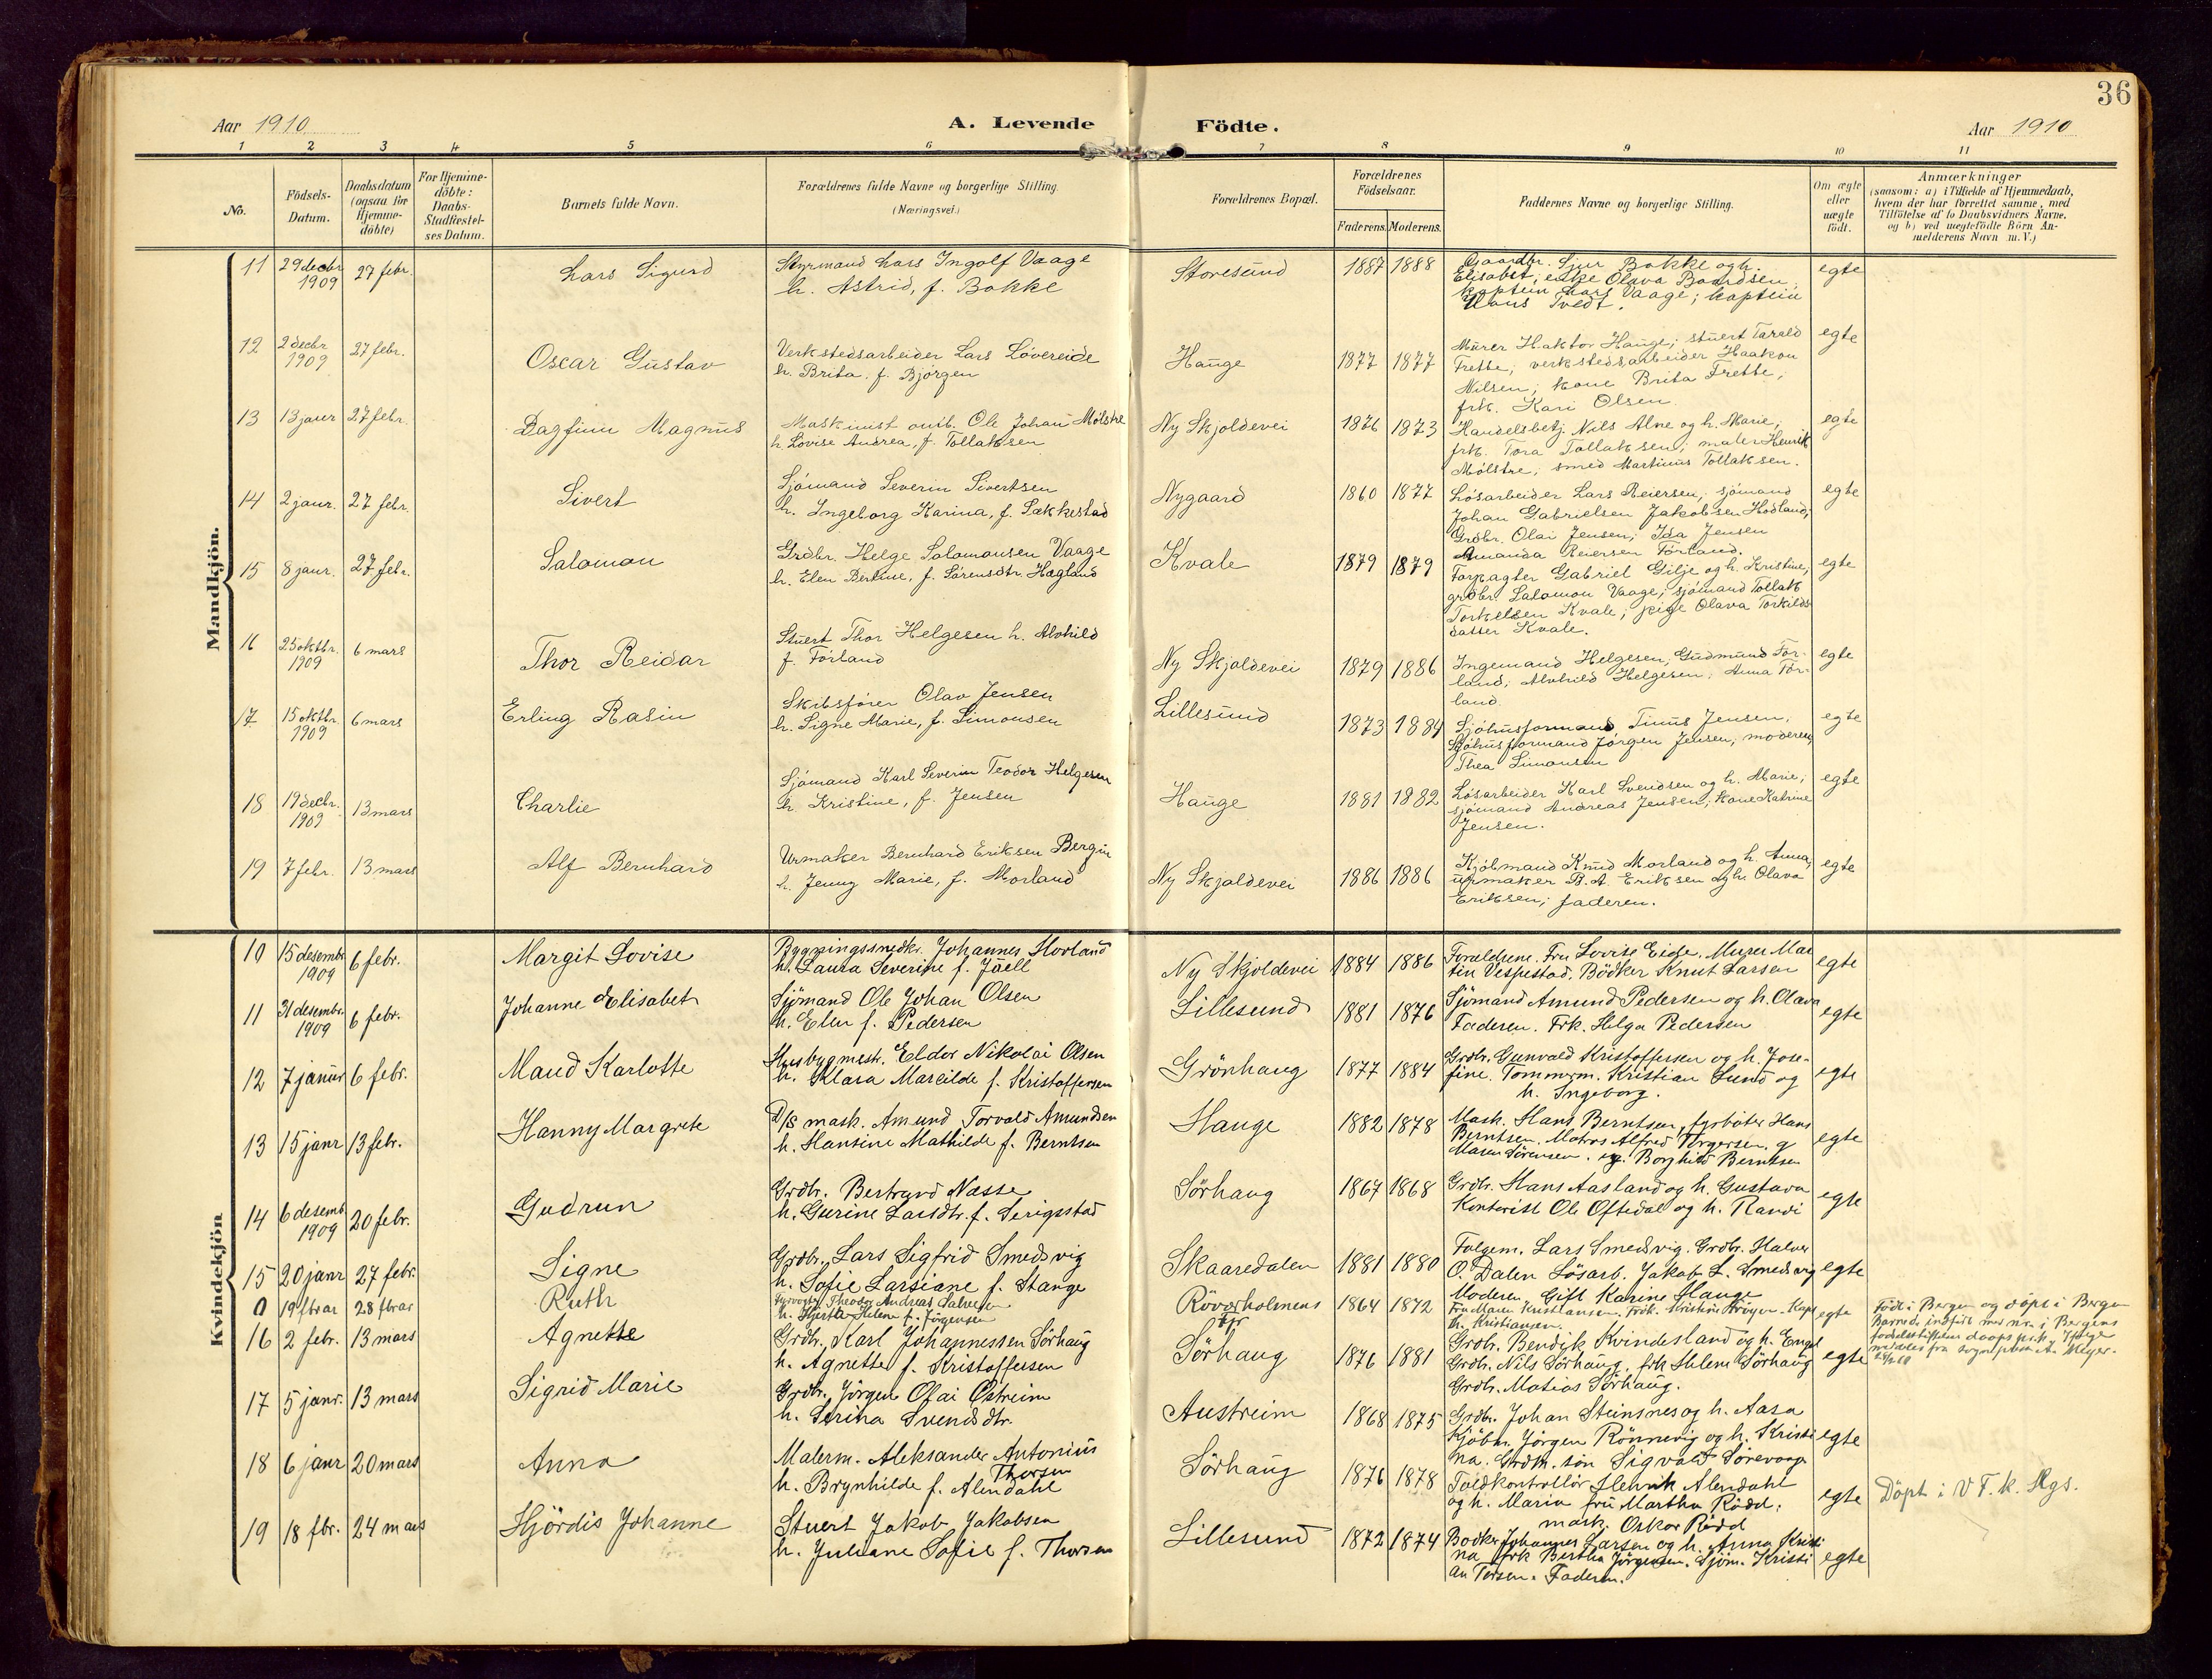 36
Aar 1910
A. Levende Födte.
Aar 1910
1 2 3 4 5 6 7 8 9 10 11
No.
Födsels-Datum.
Daabsdatum (ogsaa for Hjemme-döbte)
For Hjemme-döbte: Daabs-Stadfestel-ses Datum.
Barnets fulde Navn.
Forældrenes fulde Navne og borgerlige Stilling.
(Næringsvei.)
Forældrenes Bopæl.
Forældrenes Födselsaar.
Faderens. Moderens.
Faddernes Navne og borgerlige Stilling.
Om ægte eller uægte födt.
Anmærkninger
(saasom: a) i Tilfælde af Hjemmedaab, hvem der har forrettet samme, med Tilføielse af to Daabsvidners Navne, og b) ved uægtefödte Börn An-melderens Navn m. V.)
Mandkjön.
11 29 decbr 1909 27 febr. Lars Sigurd
Styrmand Lars Ingolf Vaage
h. Astrid, f. Bakke
Storesund 1887 1888
Gaardbr. Sjur Bakke og h.
Elisabet; enke Olava Baardsen,
kaptein Lars Vaage; kaptein
Hans Tvedt.
egte
12 2 decbr 1909 27 febr. Oscar Gustav
Verkstedsarbeider Lars Lövereide
h. Brita, f. Bjørgen
Hauge 1877 1877
Murer Haktor Hauge; stuert Tarald
Frette; verkstedsarbeider Haakon
Nilsen; kone Brita Frette;
frk. Kari Olsen.
egte
13 13 janr 27 febr. Dagfinn Magnus
Maskinist Ole Johan Mølstre
h. Lovise Andrea, f. Tollaksen
Ny Skjoldevei 1876 1873
Handelsbetj. Nils Alne og h. Marie;
frk. Tora Tollaksen; maler Henrik
Mølstre; smed Martinus Tollaksen.
egte
14 2 janr. 27 febr. Sivert
Sjømand Severin Sivertsen
h. Ingeborg Karina, f. Sækkestad
Nygaard 1860 1877
Løsarbeider Lars Reiersen; sjømand
Johan Gabrielsen Jakobsen Hodland;
Grdbr. Olai Jensen; Ida Jensen
Amanda Reiersen Førland.
egte
15 8 janr. 27 febr. Salomon
Grdbr. Helge Salomonsen Vaage
h. Elen Bertine, f. Sørensdtr. Hagland
Kvale 1879 1879
Forpagter Gabriel Gilje og h. Kristine;
grdbr. Salomon Vaage; sjømand Tollak
Torkelsen Kvale; pige Olava Torkilds
datter Kvale.
egte
16 25 oktbr. 1909 6 mars Thor Reidar
Stuert Thor Helgesen h. Alvhild
f. Førland
Ny Skjoldevei 1879 1886
Ingemand Helgesen; Gudmund Før-
land; Alvhild Helgesen; Anna Før-
land.
egte
17 15 oktbr. 1909 6 mars Erling Rasin
Skibsfører Olav Jensen
h. Signe Marie, f. Simonsen
Lillesund 1873 1884
Sjøhusformand Tinus Jensen,
Sjøhusformand Jørgen Jensen; moderen,
Thea Simonsen
egte
18 19 decbr. 1909 13 mars Charlie
Sjømand Karl Severin Teodor Helgesen
h. Kristine, f. Jensen
Hauge 1881 1882
Løsarbeider Karl Svendsen og h. Marie;
sjømand Andreas Jensen; kone Katrine
Jensen.
egte
19 7 febr. 13 mars Alf Bernhard
Urmaker Bernhard Eriksen Bergin
h. Jenny Marie, f. Morland
Ny Skjoldevei 1886 1886
Kjøbmand Knud Morland og h. Anna,
urmaker B. A. Eriksen og h. Olava
Eriksen; faderen.
egte
Kvindekjön
10 15 desembr 1909 6 febr. Margit Lovise
Bygningssnedkr. Johannes Morland
h. Laura Severine f. Juell
Ny Skjoldevei 1884 1886
Foreldrene. Fru Lovise Eide. Murer Mar
tin Vespestad. Bödker Knut Larsen
egte
11 31 desembr. 1909 6 febr. Johanne Elisabet
Sjömand Ole Johan Olsen
h. Elen f. Pedersen
Lillesund 1881 1876
Sjömand Amund Pedersen og h. Olava
Faderen. Frk. Helga Pedersen
egte
12 7 januar 6 febr. Maud Karlotte
Husbygmestr. Eldor Nikolai Olsen
h. Klara Marcilde f. Kristoffersen
Grönhaug 1877 1884
Grdbr. Gunvald Kristoffersen og h. Jose-
fine. Tommerm. Kristian Lund og
h. Ingeborg.
egte
13 15 janr 13 febr. Hanny Margrete
D/S mask. Amund Torvald Amundsen
h. Hansine Mathilde f. Berntsen
Hauge 1882 1878
Mask. Hans Berntsen, fyrböter Hans
Berntsen. Matros Alfred Torgersen. g
Maren Sörensen. eg. Borghild Berntsen
egte
14 6 desemb. 1909 20 febr. Gudrun
Grdbr. Bertrand Nasse
h. Gurine Larsdtr. f. Serigstad
Sörhaug 1867 1868
Grdbr. Hans Aasland og h. Gustava
Kontorist Ole Oftedal og h. Randi
egte
15 20 janr 27 febr. Signe
Grdbr. Lars Sigfrid Smedsvig
h. Sofie Larsiane f. Stange
Skaaredalen 1881 1880
Folgem. Lars Smedsvig. Grdbr. Halvor
O. Dalen Lösarb. Jakob L. Smedsvig
Moderen Gift Karine Stange
egte
0 19 fbrar 28 fbrar Ruth
Fyrvogter Theodor Andreas Salvesen
h. Hjertha Helene f. Jörgensen
Røverholmens fyr 1864 1872
Fru Maren Kristiansen. Frök. Kristine Krøyer. Kapt
Kristiansen.
egte
Födt i Bergen og döpt i Bergen
16 2 febr. 13 mars Agnette
Grdbr. Karl Johannessen Sörhaug
h. Agnette f. Kristoffersen
Sörhaug 1876 1881
Grdbr. Bendik Kvindesland og h. Engel
Grdbr. Nils Sörhaug. frk Helene Sörhaug
Grdbr. Matias Sörhaug.
egte
17 5 janr. 13 mars Sigrid Marie
Grdbr. Jörgen Olai Østreim
h. Serina Svendsdtr.
Austreim 1868 1875
Grdbr. Johan Steinsnes og h. Aasa
Kjöbm. Jörgen Rönnevig og h. Kristi
na. Grdbr. sön Sigvald
egte
18 6 janr 20 mars Anna
Malerm. Aleksander Antonius
Thorsen
h. Brynhilde f. Alendahl
Sörhaug 1876 1878
Toldkontrollör Henrik Alendahl
og h. Maria fru Martha Rödd.
mask. Oskar Rödd
egte
Döpt i V F. k. Hgs.
19 18 fbr. 24 mars Hjördis Johanne
Stuert Jakob Jakobsen
h. Juliane Sofie f. Thorsen
Lillesund 1872 1874
Bodker Johannes Larsen og h. Anna Kristi
na frk Bertha Jörgensen. Sjöm. Kristi
an Torsen. Faderen.
egte